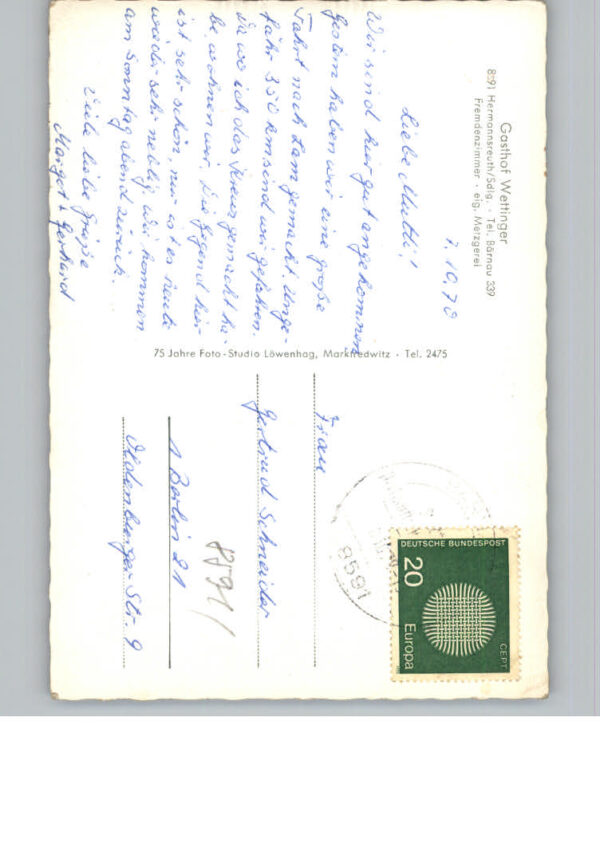 Gasthof Wettinger
8591 Hermannsreuth/Sdlg. · Tel. Bärnau 339
Fremdenzimmer · eig. Metzgerei
7.10.70
Liebe Mutti!
Wir sind hier gut angekommen
Gestern haben wir eine große
Fahrt nach Lam gemacht. Unge-
fähr 350 km sind wir gefahren.
Da wo ich das Kreuz gemacht ha-
be, wohnen wir. Die Gegend hier
ist sehr schön, nur ist es heute
wieder sehr neblig. Wir kommen
am Sonntag abend zurück.
Viele liebe Grüße
Margot + Gerhard
75 Jahre Foto-Studio Löwenhag, Marktredwitz · Tel. 2475
Frau
Gertrud Schneider
1 Berlin 21
Oldenburger Str. 9
8591
8591
DEUTSCHE BUNDESPOST
20
Europa
CEPT